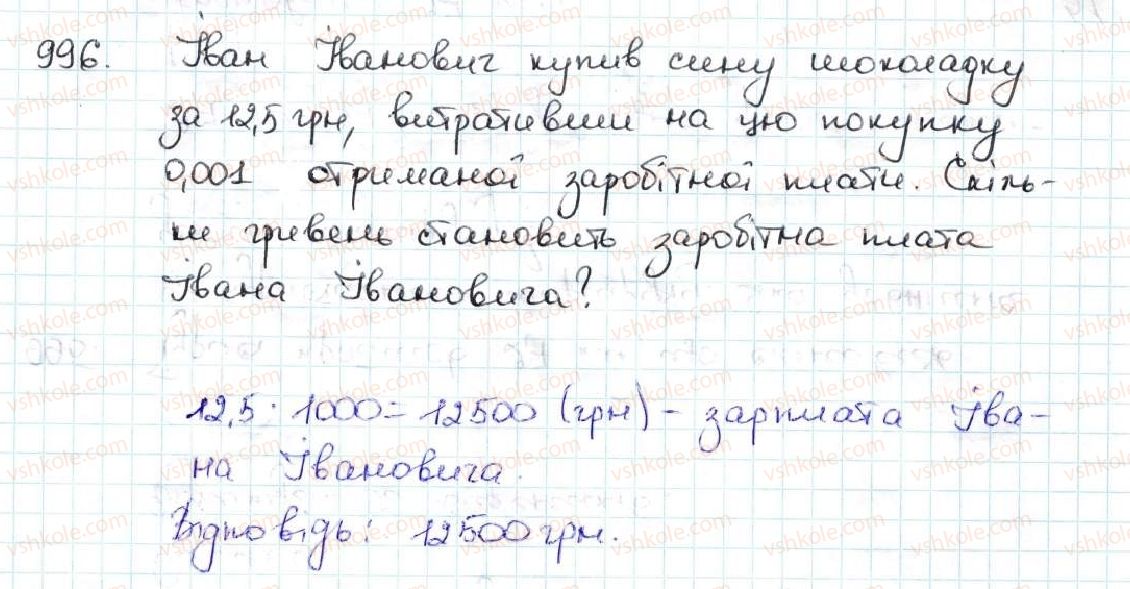 996. Іван Іванович купив сину шоколадку
за 12,5 грн, витративши на цю покупку
0,001 отриманої заробітної плати. Скіль-
ки гривень становить заробітна плата
Івана Івановича?
12,5 · 1000 = 12500 (грн) - зарплата Іва-
на Івановича.
Відповідь: 12500 грн.